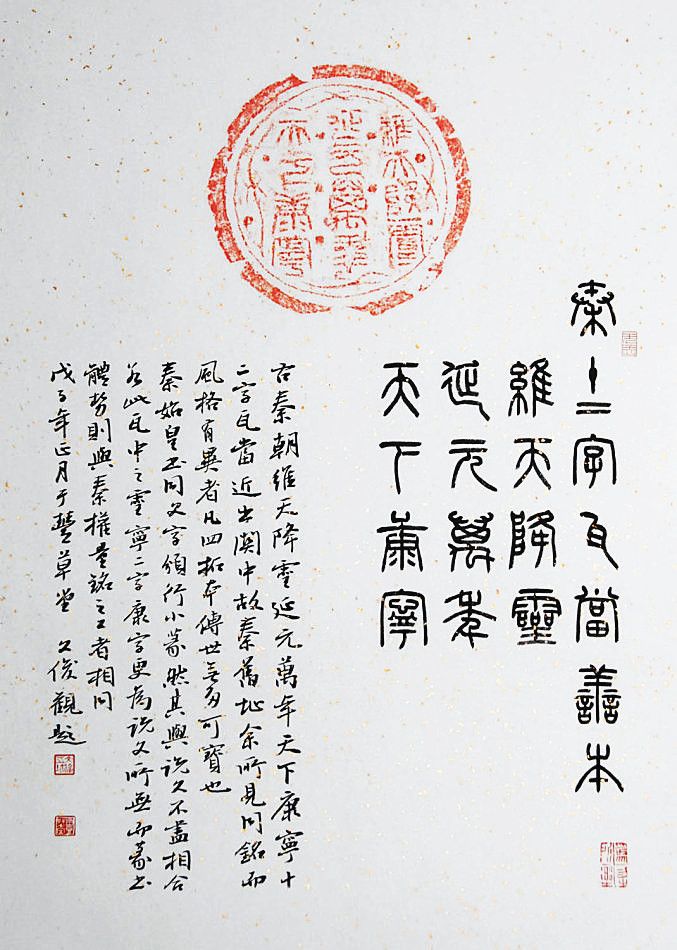 維天降靈
延元萬年
天下康寧
秦十二字瓦當善本
維天降靈
延元萬年
天下康寧
古秦朝維天降靈延元萬年天下康寧十
二字瓦當近出関中故秦舊址余所見同銘而
風格有異者凡四拓本傳世無多可寶也
秦始皇書同文字頒行小篆然其與說文不盡相合
若此瓦中之靈寧二字康字更為說文所無而篆書
體勢則與秦權量銘之工者相同
戊子年正月于豐草堂 文俊觀題